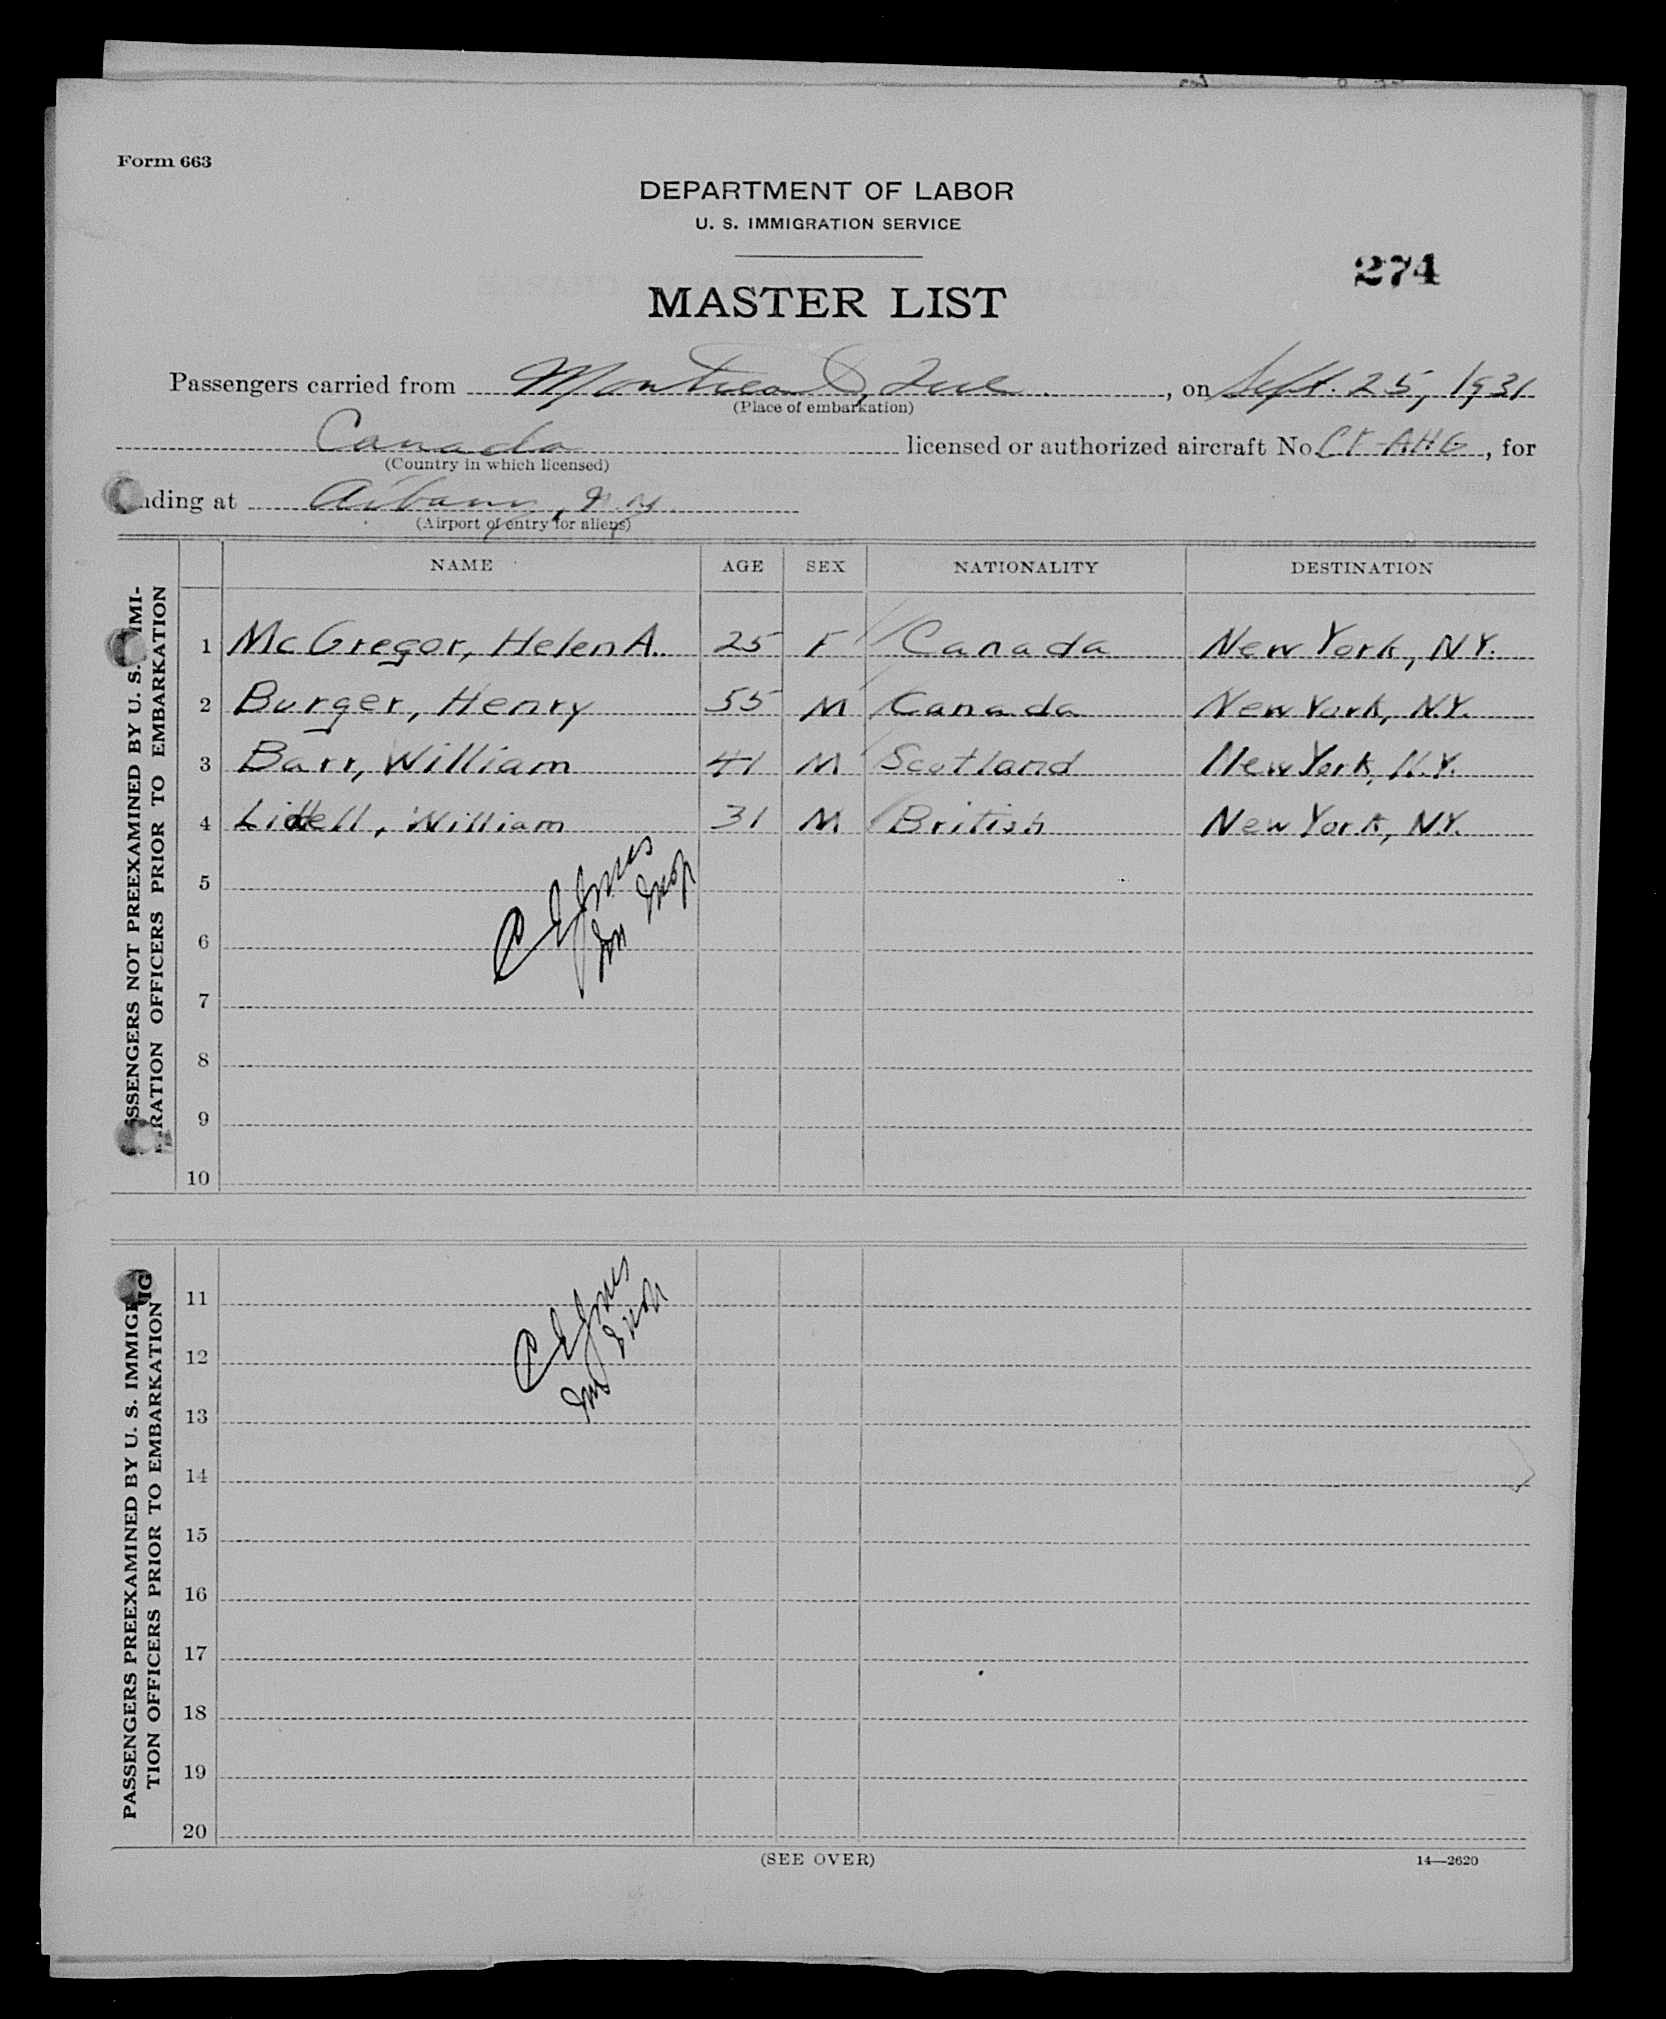 Form 663
DEPARTMENT OF LABOR
U. S. IMMIGRATION SERVICE
274
MASTER LIST
Passengers carried from Montreal, Que. , on Sept. 25, 1931
(Place of embarkation)
Canada licensed or authorized aircraft No. CF-AHG, for
(Country in which licensed)
nding at Albany, N.Y.
(Airport of entry for aliens)
NAME AGE SEX NATIONALITY DESTINATION
SSENGERS NOT PREEXAMINED BY U. S. IMMI-
RATION OFFICERS PRIOR TO EMBARKATION
1 McGregor, Helen A. 25 F Canada New York, N.Y.
2 Burger, Henry 55 M Canada New York, N.Y.
3 Barr, William 41 M Scotland New York, N.Y.
4 Liddell, William 31 M British New York, N.Y.
5
C E Jones
Im Insp
6
7
8
9
10
PASSENGERS PREEXAMINED BY U. S. IMMIGRA
TION OFFICERS PRIOR TO EMBARKATION
11
C E Jones
Im Insp
12
13
14
15
16
17
18
19
20
(SEE OVER)
14—2620